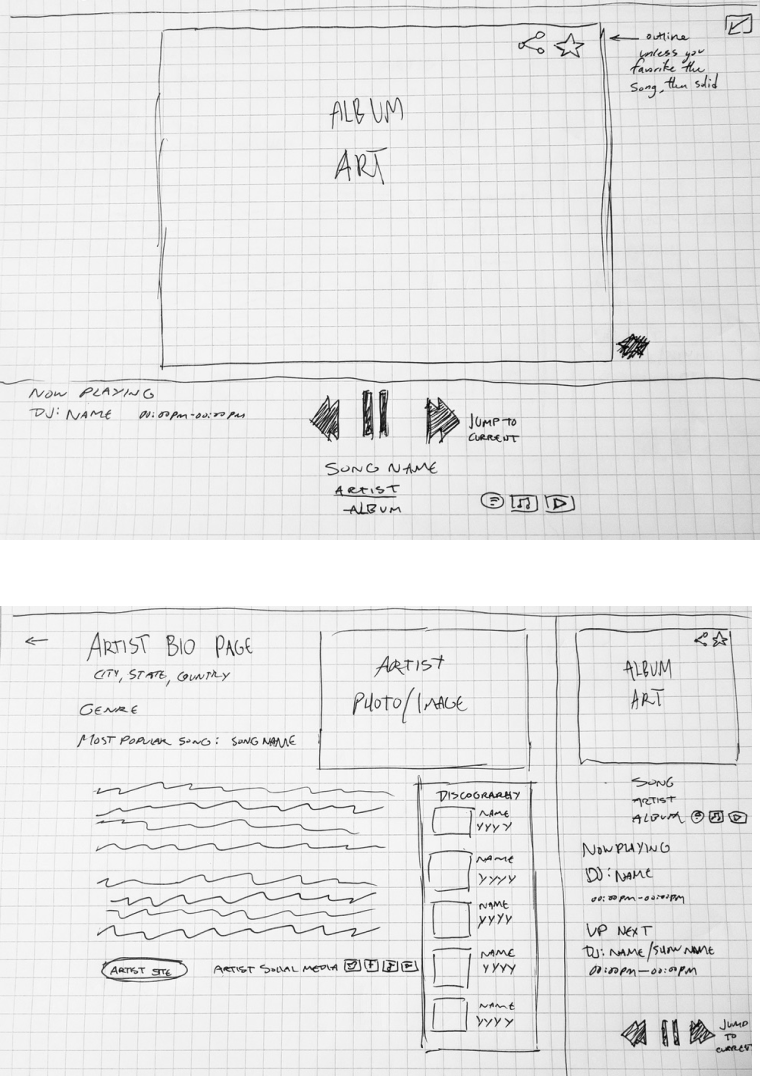 outline
unless you
favorite the
song, then solid
ALBUM
ART
NOW PLAYING
DJ: NAME 00:00PM-00:00PM
JUMP TO
CURRENT
SONG NAME
ARTIST
ALBUM
ARTIST BIO PAGE
CITY, STATE, COUNTRY
GENRE
MOST POPULAR SONG: SONG NAME
ARTIST
PHOTO/IMAGE
DISCOGRAPHY
NAME
YYYY
NAME
YYYY
NAME
YYYY
NAME
YYYY
NAME
YYYY
ARTIST SITE
ARTIST SOCIAL MEDIA
ALBUM
ART
SONG
ARTIST
ALBUM
NOW PLAYING
DJ: NAME
00:00PM-00:00PM
UP NEXT
DJ: NAME/SHOW NAME
00:00PM-00:00PM
JUMP
TO
CURRENT